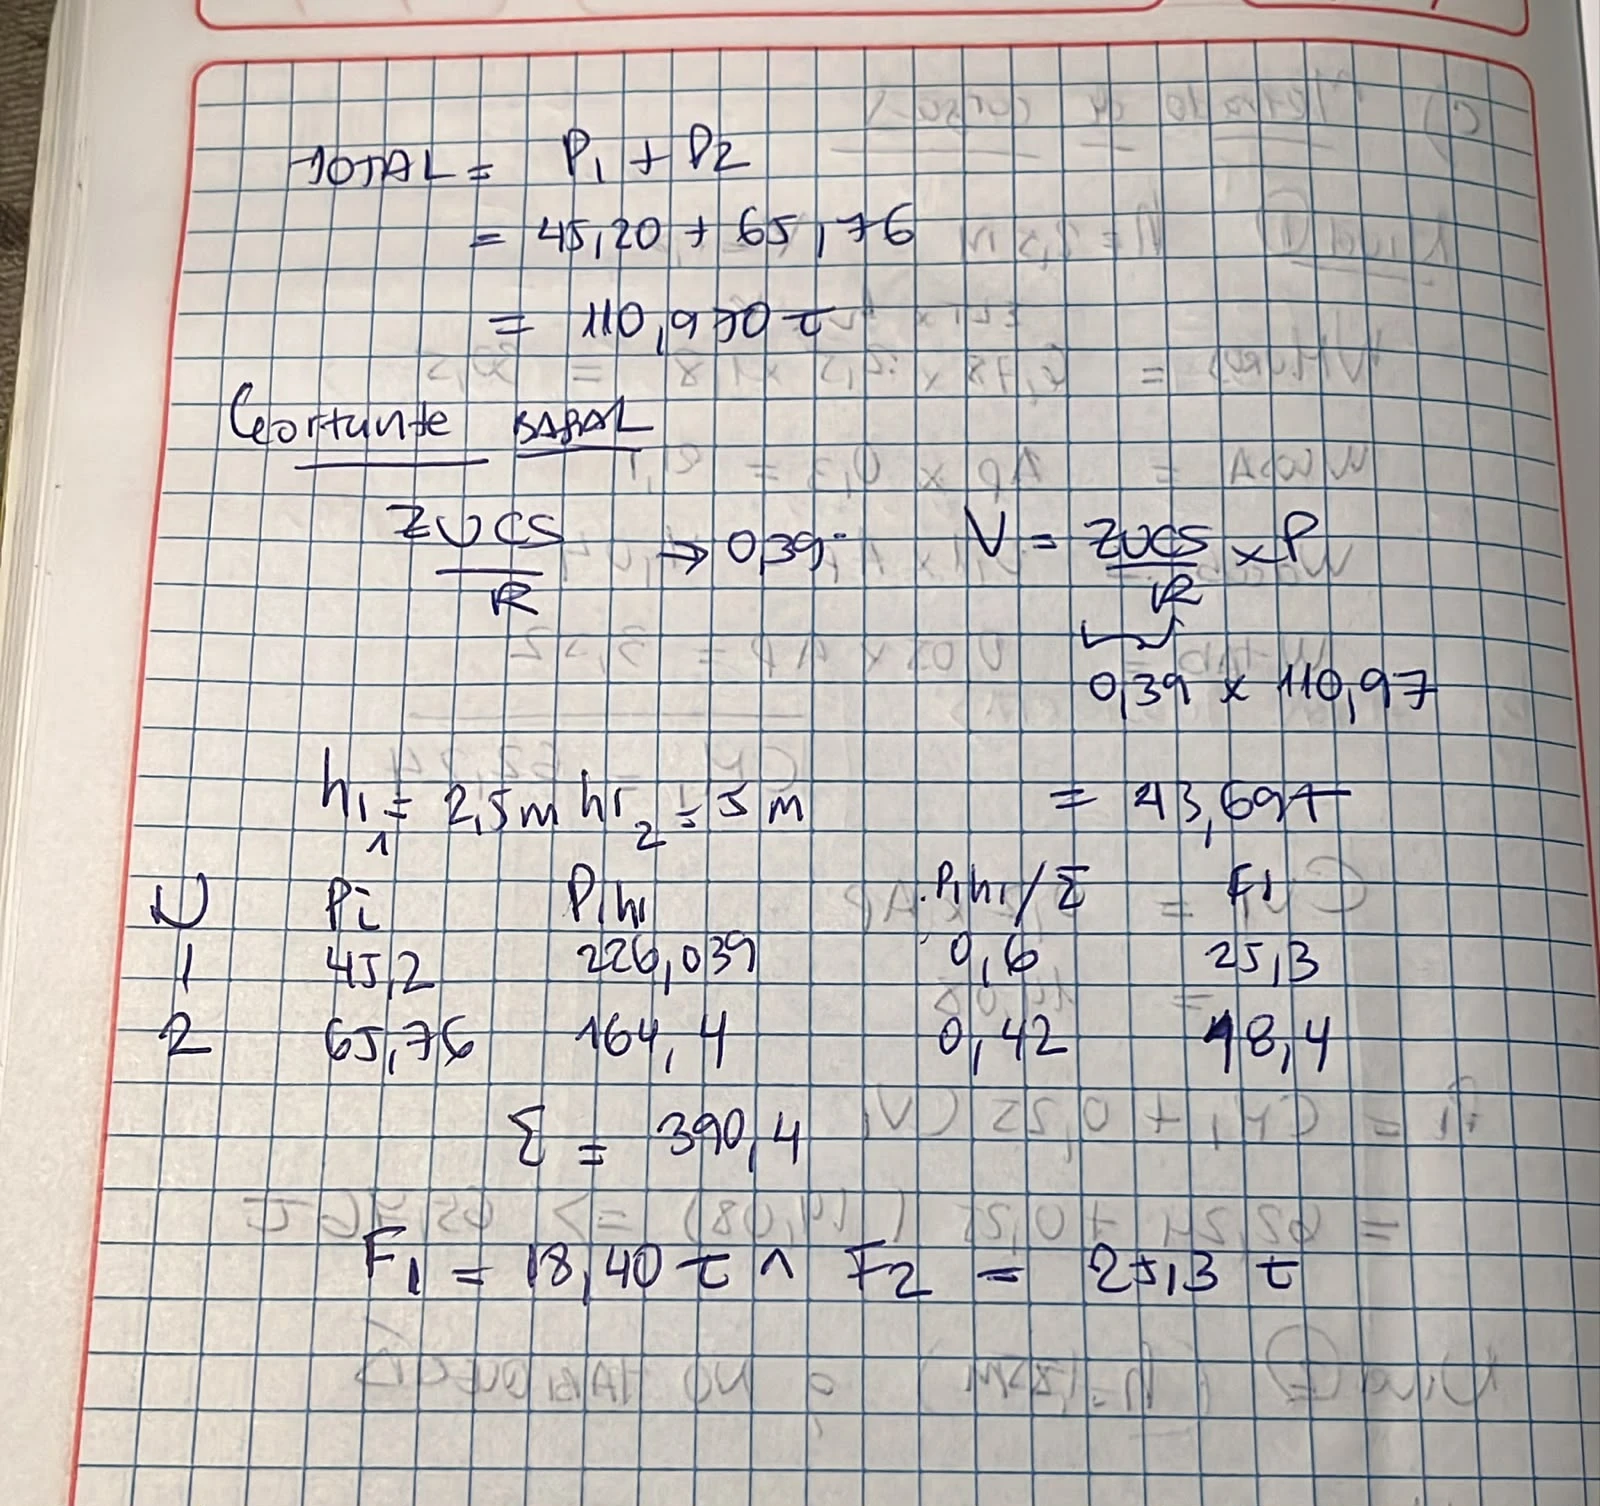 TOTAL = P1 + P2
= 45,20 + 65,76
= 110,970 t
Cortante BASAL
ZUCS/R → 0,39 V = ZUCS/R x P
0,39 x 110,97
h1 1 = 2,5m hi 2 = 5 m = 43,69t
N Pi Pihi Pihi/Σ Fi
1 45,2 226,039 0,6 25,3
2 65,76 164,4 0,42 18,4
Σ = 390,4
F1 = 18,40 t ^ F2 = 25,3 t